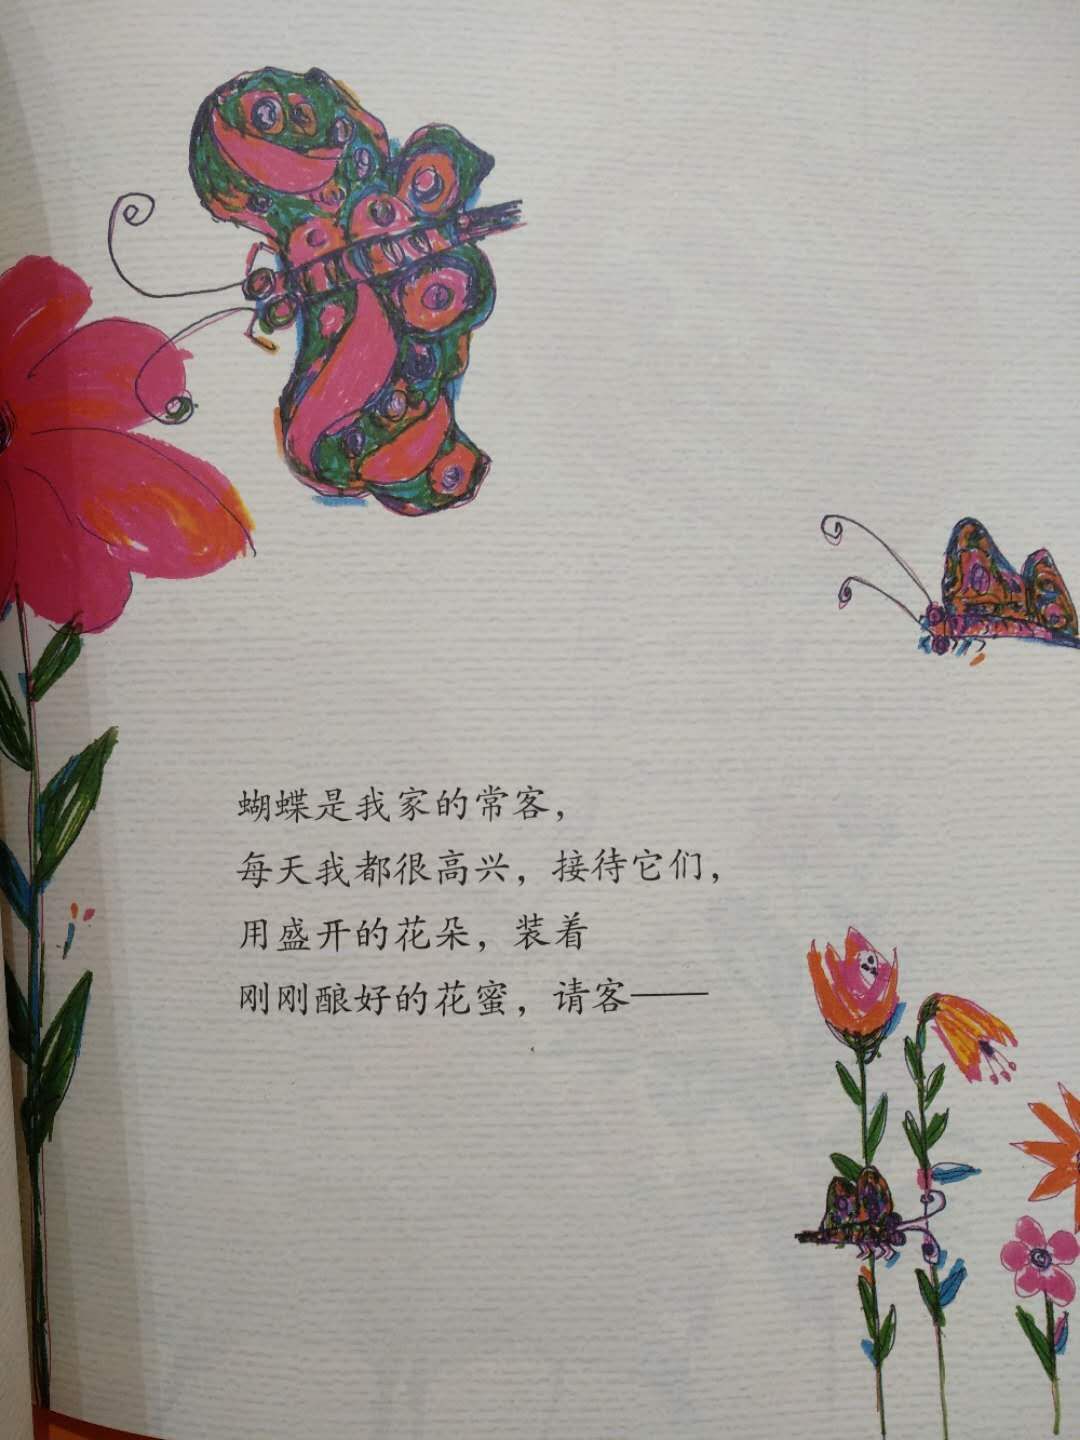 蝴蝶是我家的常客，
每天我都很高兴，接待它们，
用盛开的花朵，装着
刚刚酿好的花蜜，请客——